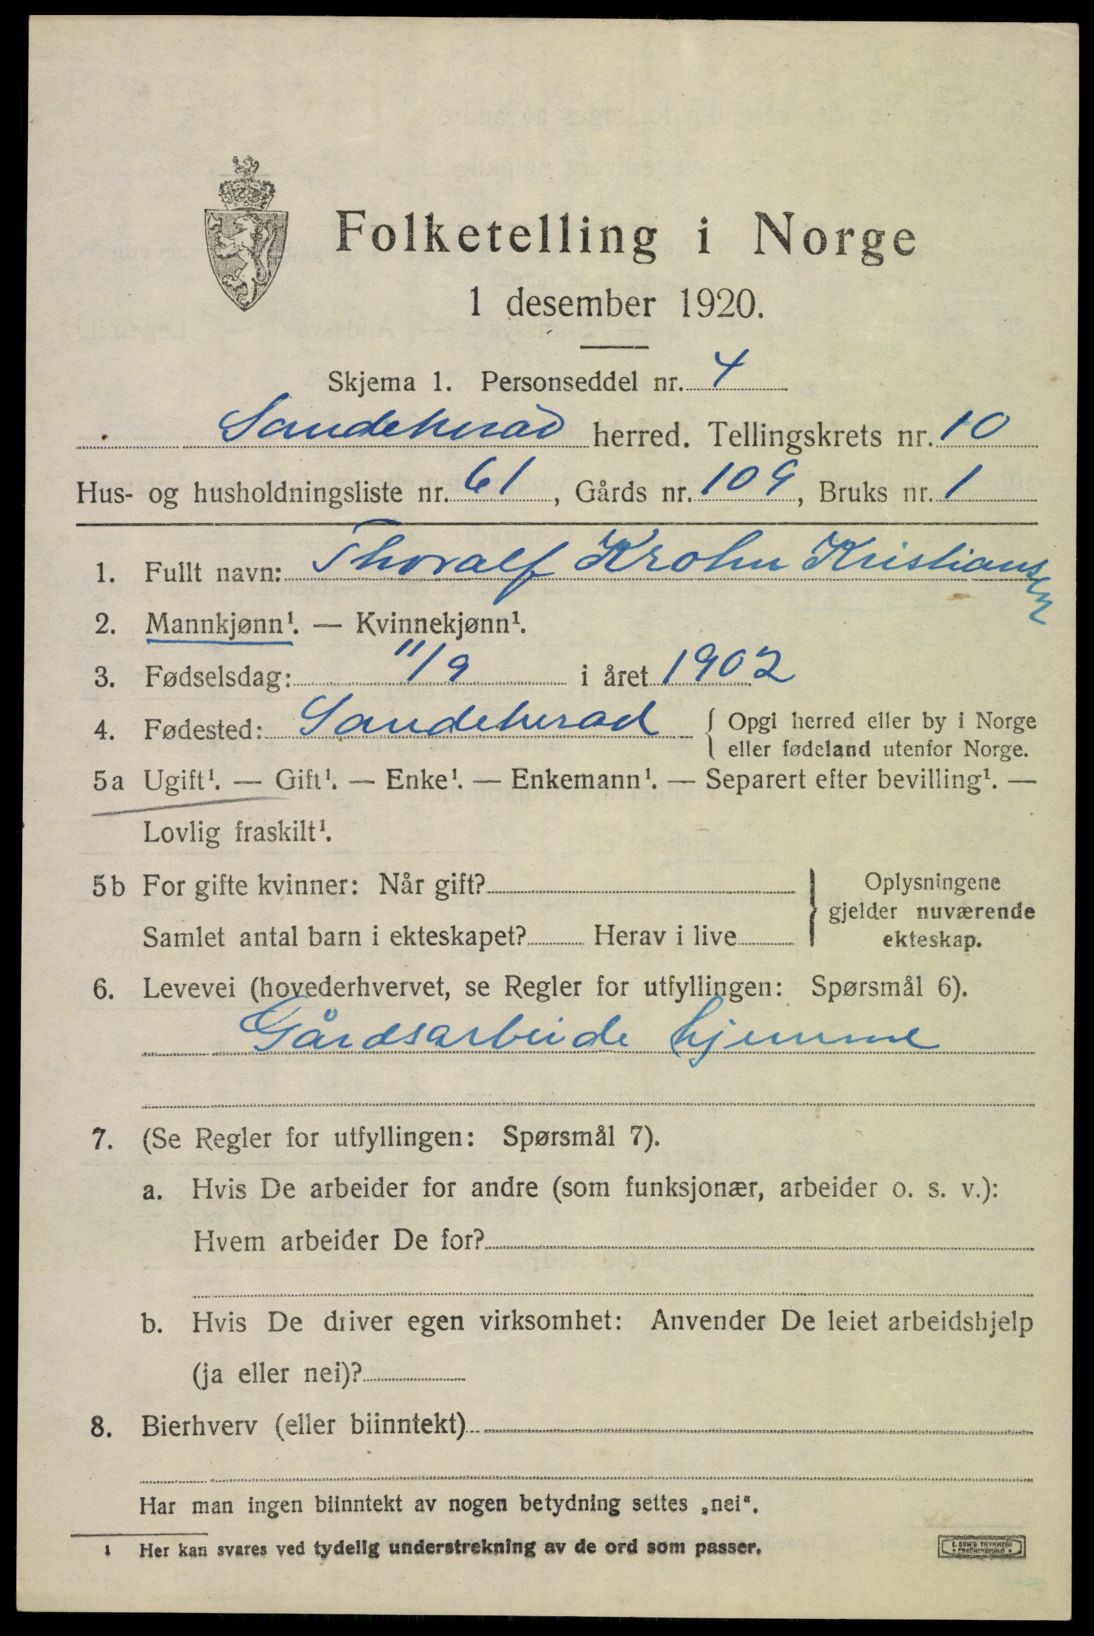 Folketelling i Norge
1 desember 1920.
Skjema 1. Personseddel nr. 4
Sandeherad herred. Tellingskrets nr. 10
Hus- og husholdningsliste nr. 61, Gårds nr. 109, Bruks nr. 1
1. Fullt navn: Thoralf Krohn Kristiansen
2. Mannkjønn¹. — Kvinnekjønn¹.
3. Fødselsdag: 11/9 i året 1902
4. Fødested: Sandeherad { Opgi herred eller by i Norge
eller fødeland utenfor Norge.
5a Ugift¹. — Gift¹. — Enke¹. — Enkemann¹. — Separert efter bevilling¹. —
Lovlig fraskilt¹.
5b For gifte kvinner: Når gift?
Samlet antal barn i ekteskapet? Herav i live
} Oplysningene
gjelder nuværende
ekteskap.
6. Levevei (hovederhvervet, se Regler for utfyllingen: Spørsmål 6).
Gårdsarbeide hjemme
7. (Se Regler for utfyllingen: Spørsmål 7).
a. Hvis De arbeider for andre (som funksjonær, arbeider o. s. v.):
Hvem arbeider De for?
b. Hvis De driver egen virksomhet: Anvender De leiet arbeidshjelp
(ja eller nei)?
8. Bierhverv (eller biinntekt)
Har man ingen biinntekt av nogen betydning settes „nei“.
¹ Her kan svares ved tydelig understrekning av de ord som passer.